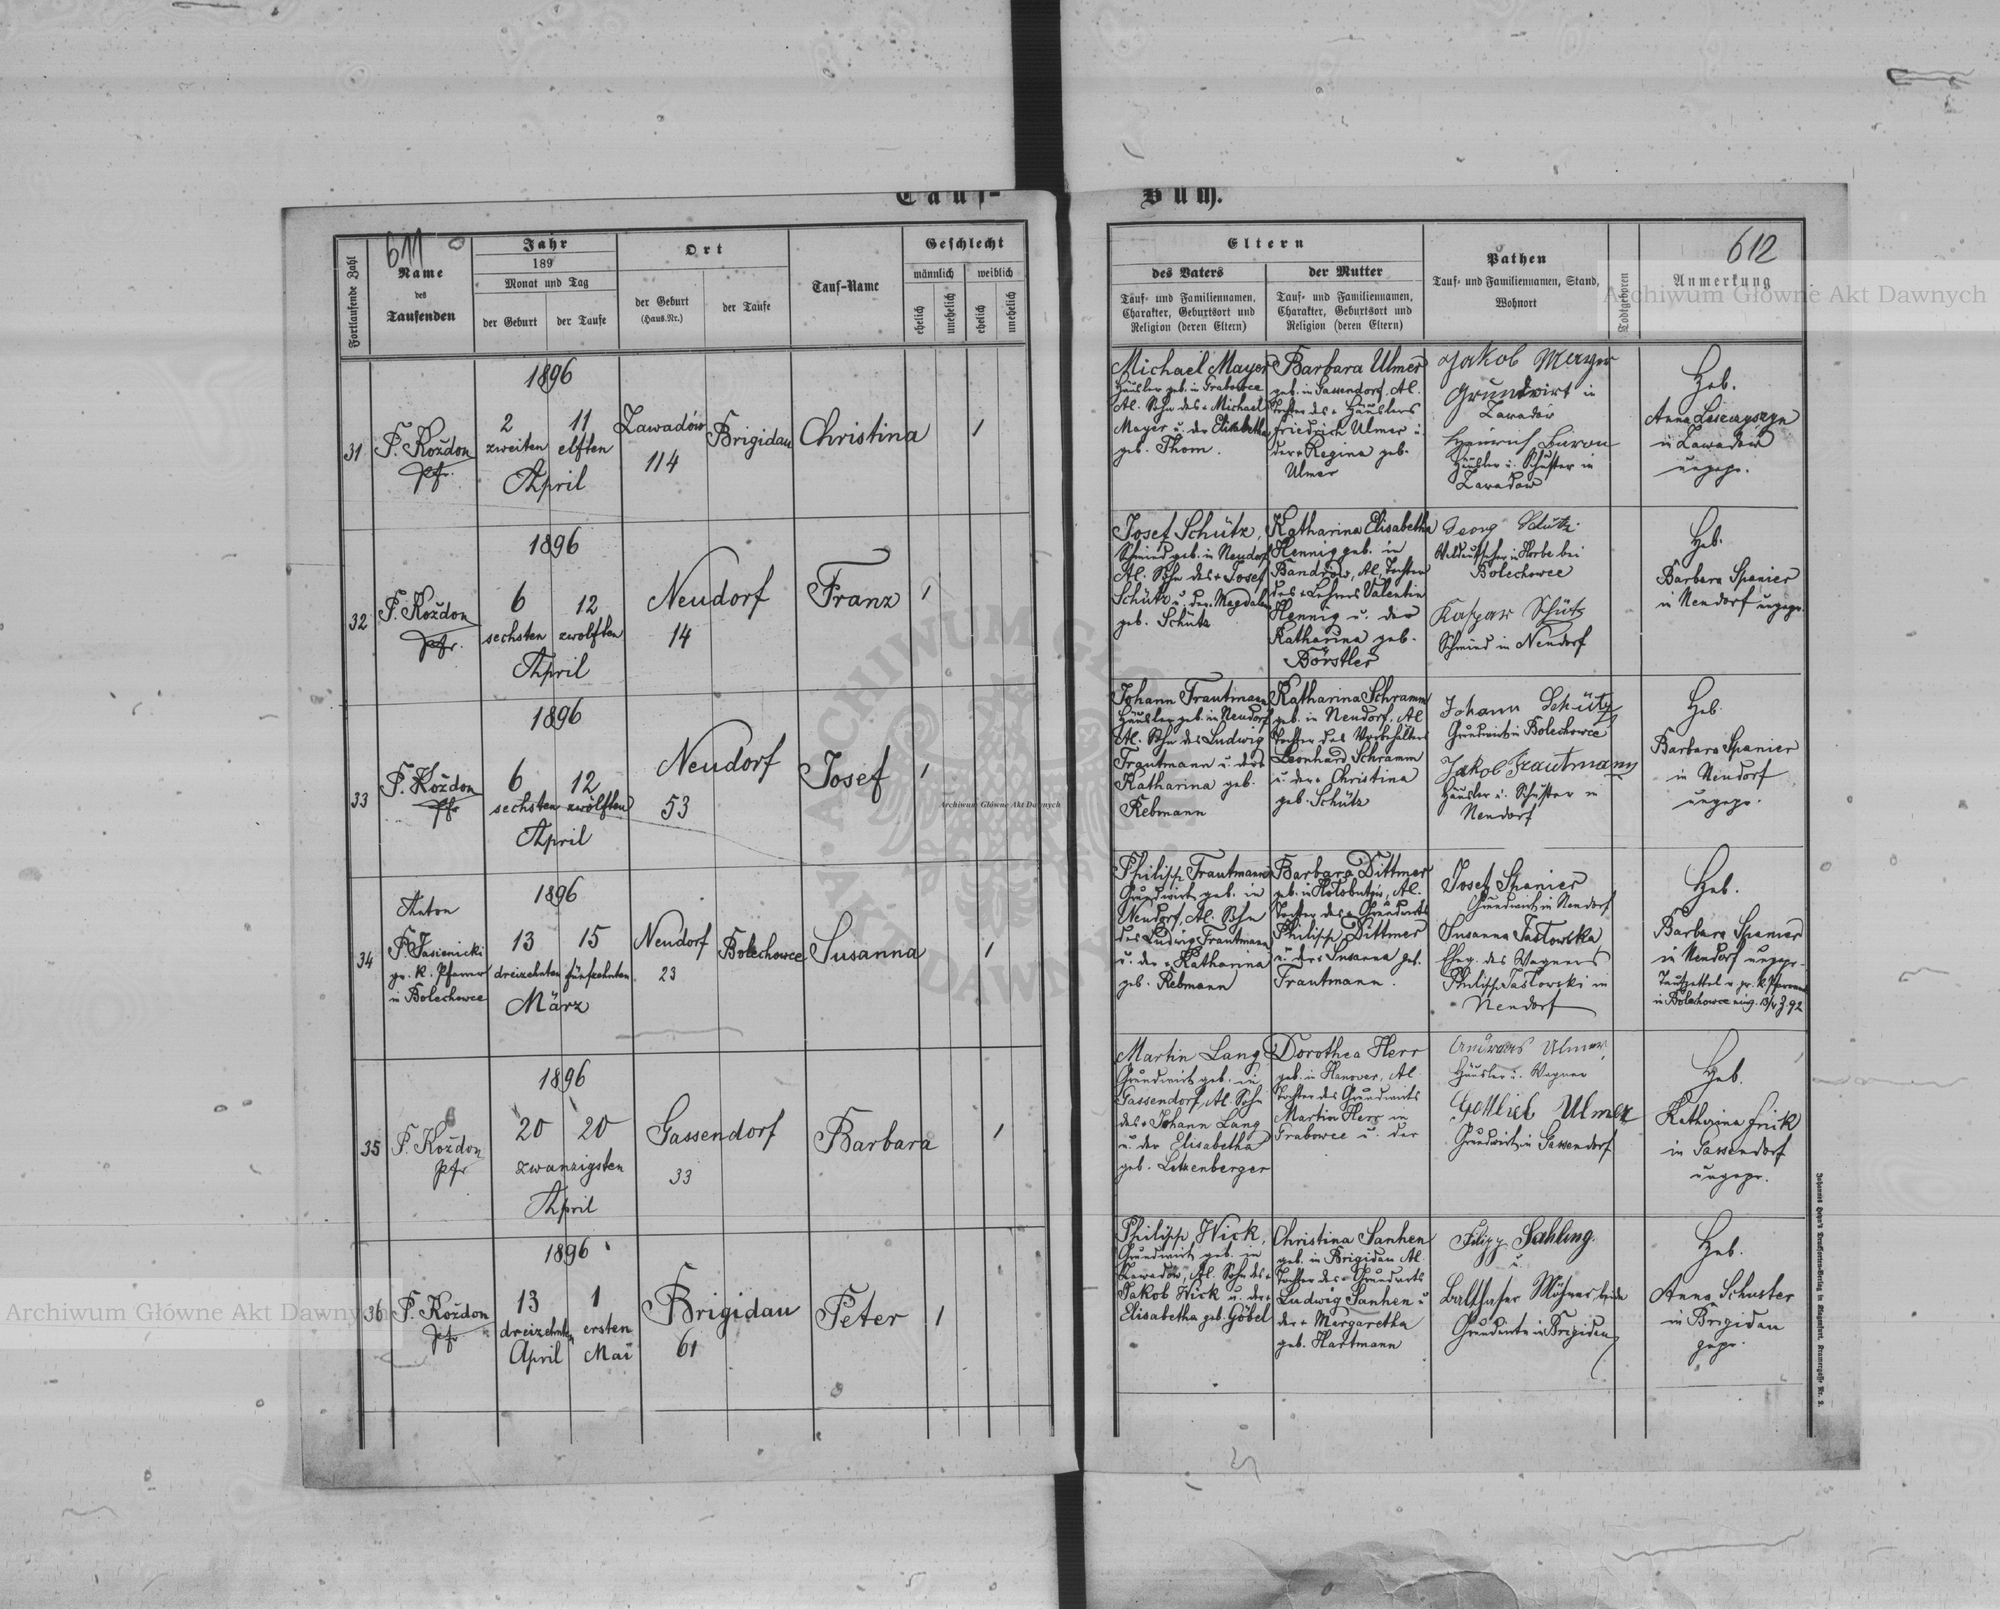 Tauf-
Buch.
611
612
Fortlaufende Zahl
Name
des
Taufenden
Jahr
189
Monat und Tag
der Geburt
der Taufe
Ort
der Geburt
(Haus-Nr.)
der Taufe
Tauf-Name
Geschlecht
männlich
weiblich
ehelich
unehelich
ehelich
unehelich
Eltern
des Vaters
Tauf- und Familiennamen,
Charakter, Geburtsort und
Religion (deren Eltern)
der Mutter
Tauf- und Familiennamen,
Charakter, Geburtsort und
Religion (deren Eltern)
Pathen
Tauf- und Familiennamen, Stand,
Wohnort
Todtgeboren
Anmerkung
31
F. Koždon
Pfr.
1896
2
zweiten
11
elften
April
Zawadów
114
Brigidau
Christina
1
Michael Mayer
Häusler geb. in Grabowce
Al. Sohn des + Michael
Mayer u. der Elisabetha
geb. Thom.
Barbara Ulmer
geb. in Gassendorf, Al.
Tochter des + Häuslers
Friedrich Ulmer u.
der + Regina geb.
Ulmer
Jakob Mayer
Grundwirt in
Zawadów
Heinrich
Häusler u. Schuster in
Zawadow
Heb.
Anna
in Zawadów
ungepr.
32
F. Koždon
Pfr.
1896
6
sechsten
12
zwölften
April
Neudorf
14
Franz
1
Josef Schütz,
Schmied geb. in Neudorf
Al. Sohn des + Josef
Schütz u. der Magdalena
geb. Schütz
Katharina Elisabetha
Hennig geb. in
Bandrów, Al. Tochter
des + Lehrers Valentin
Hennig u. der
Katharina geb.
Börstler
Georg Schütz
in bei
Bolechowce
Kaspar Schütz
Schmied in Neudorf
Heb.
Barbara Spanier
in Neudorf ungepr.
33
F. Koždon
Pfr
1896
6
sechsten
12
zwölften
April
Neudorf
53
Josef
1
Johann Trautmann
Häusler geb. in Neudorf
Al. Sohn des Ludwig
Trautmann u. der
Katharina geb.
Rebmann
Katharina Schramm
geb. in Neudorf, Al.
Tochter des Vorbehälters
Leonhard Schramm
u. der + Christina
geb. Schütz
Johann Schütz
Grundwirt in Bolechowce
Jakob Trautmann
Häusler u. Schuster in
Neudorf
Heb.
Barbara Spanier
in Neudorf
ungepr.
34
Anton
F. Jasienicki
gr. k. Pfarrer
in Bolechowce
1896
13
dreizehnten
15
fünfzehnten
März
Neudorf
23
Bolechowce
Susanna
1
Philipp Trautmann
Grundwirt geb. in
Neudorf, Al. Sohn
des Ludwig Trautmann
u. der + Katharina
geb. Rebmann
Barbara Dittmer
geb. in Al.
Tochter des + Grundwirts
Philipp Dittmer
u. der + Susanna geb.
Trautmann.
Josef Spanier
Grundwirt in Neudorf
Susanna Jastowska
Eheg. des Wagners
Philipp Jastowski in
Neudorf
Heb.
Barbara Spanier
in Neudorf ungepr.
Taufzettel v. gr. k. Pfarramt
in Bolechowce
35
F. Koždon
Pfr
1896
20
20
zwanzigsten
April
Gassendorf
33
Barbara
1
Martin Lang
Grundwirt geb. in
Gassendorf, Al. Sohn
des + Johann Lang
u. der Elisabetha
geb. Letzenberger
Dorothea Herr
geb. in Hanover, Al.
Tochter des Grundwirts
Martin Herr in
Grabowce u. der
Andreas Ulmer,
Häusler u. Wagner
Gottlieb Ulmer
Grundwirt in Gassendorf
Heb.
Katharina Frick
in Gassendorf
ungepr.
36
F. Koždon
Pfr
1896
13
dreizehnten
April
1
ersten
Mai
Brigidau
61
Peter
1
Philipp Wick,
Grundwirt geb. in
Zawadów, Al. Sohn des +
Jakob Wick u. der +
Elisabetha geb. Göbel
Christina Sanhen
geb. in Brigidau Al.
Tochter des + Grundwirts
Ludwig Sanhen u
der + Margaretha
geb. Hartmann
Filipp Sahling.
u.
Balthaser beide
Grundwirte in Brigidau
Heb.
Anna Schuster
in Brigidau
gepr.
Archiwum Główne Akt Dawnych
Archiwum Główne Akt Dawnych
Archiwum Główne Akt Dawnych